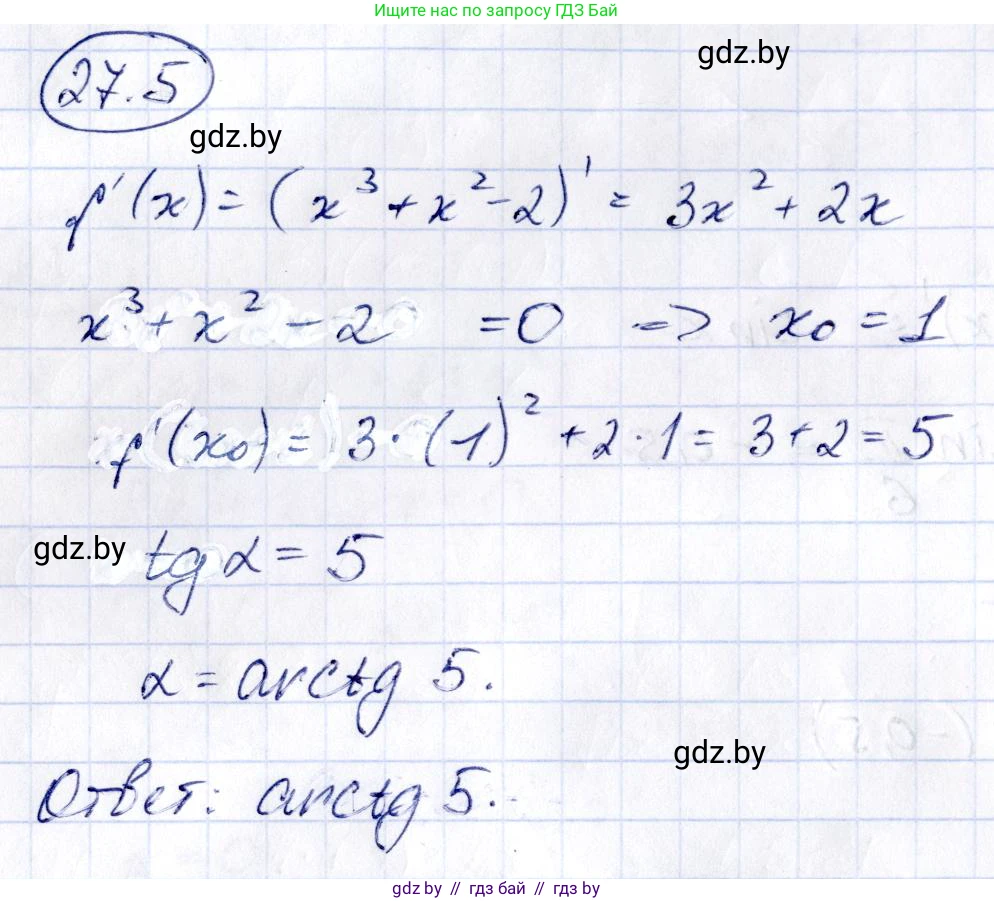 Ищите нас по запросу ГДЗ Бай
gdz.by
27.5
gdz.by
f'(x) = (x³ + x² - 2)' = 3x² + 2x
x³ + x² - 2 = 0 => x₀ = 1
f'(x₀) = 3·(1)² + 2·1 = 3 + 2 = 5
gdz.by
tg α = 5
α = arctg 5.
gdz.by
Ответ: arctg 5.
gdz.by // гдз бай // гдз by